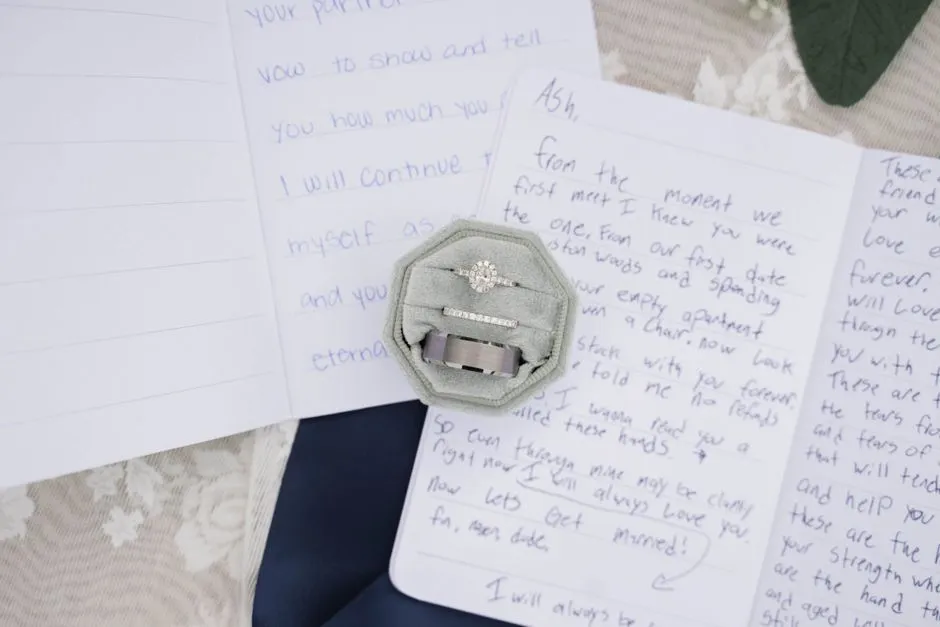 your partner
vow to show and tell
you how much you
I will continue
myself as
and you
eterna
Ash,
from the moment we
first meet I knew you were
the one. From our first date
woods and spending
your empty apartment
a chair. now look
stuck with you forever.
told me no refunds
I wanna read you a
called these hands.
So even through mine may be clamy
right now I will always love you.
now lets Get married!
I will always be
These
friend
your
love
forever.
will love
throgh the
you with
These are
the tears fro
and tears of
that will tend
and help you
these are the h
your strength whe
are the hand th
and aged
still